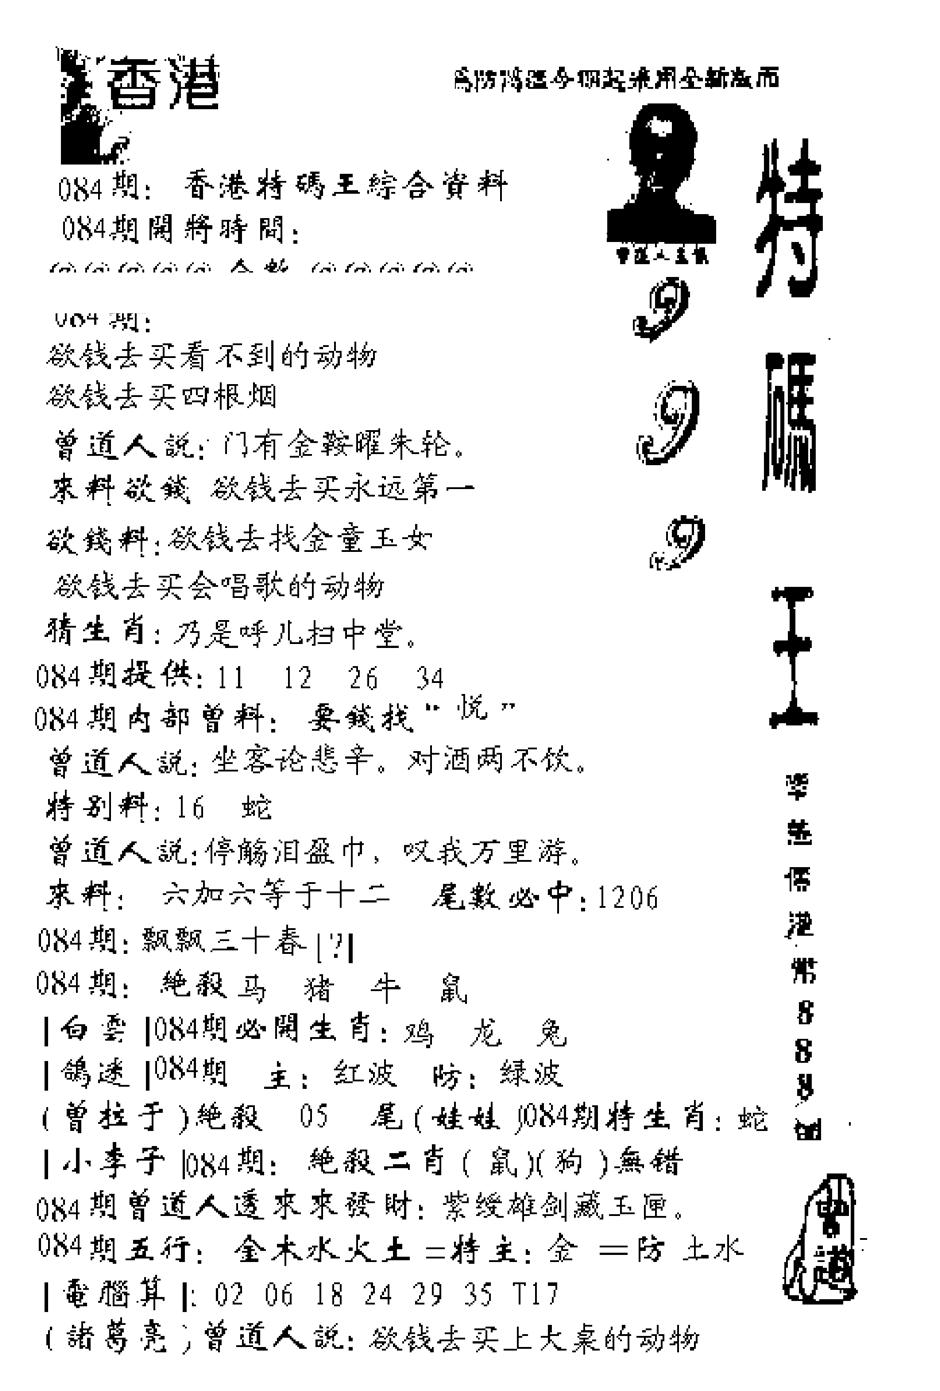 香港
為防偽造今期起采用全新版面
084期: 香港特碼王綜合資料
084期開將時間:
084期:
欲钱去买看不到的动物
欲钱去买四根烟
曾道人説: 门有金鞍曜朱轮。
來料欲錢 欲钱去买永远第一
欲錢料: 欲钱去找金童玉女
欲钱去买会唱歌的动物
猜生肖: 乃是呼儿扫中堂。
084期提供: 11 12 26 34
084期内部曾料: 要錢找“悦”
曾道人説: 坐客论悲辛。对酒两不饮。
特别料: 16 蛇
曾道人説: 停觞泪盈巾、叹我万里游。
來料: 六加六等于十二 尾數必中: 1206
084期: 飘飘三十春|?|
084期: 絶殺马 猪 牛 鼠
|白雲|084期必開生肖: 鸡 龙 兔
|鴿迷|084期 主: 红波 防: 绿波
(曾拉于)絶殺 05 尾(娃娃)084期特生肖: 蛇
|小李子|084期: 絶殺二肖(鼠)(狗)無错
084期曾道人透來來發財: 紫绶雄剑藏玉匣。
084期五行: 金木水火土=特主: 金 =防 土水
|電腦算|: 02 06 18 24 29 35 T17
(諸葛亮)曾道人説: 欲钱去买上大桌的动物
曾道人
9
9
9
特
碼
王
港
幣
8
8
8
曾道